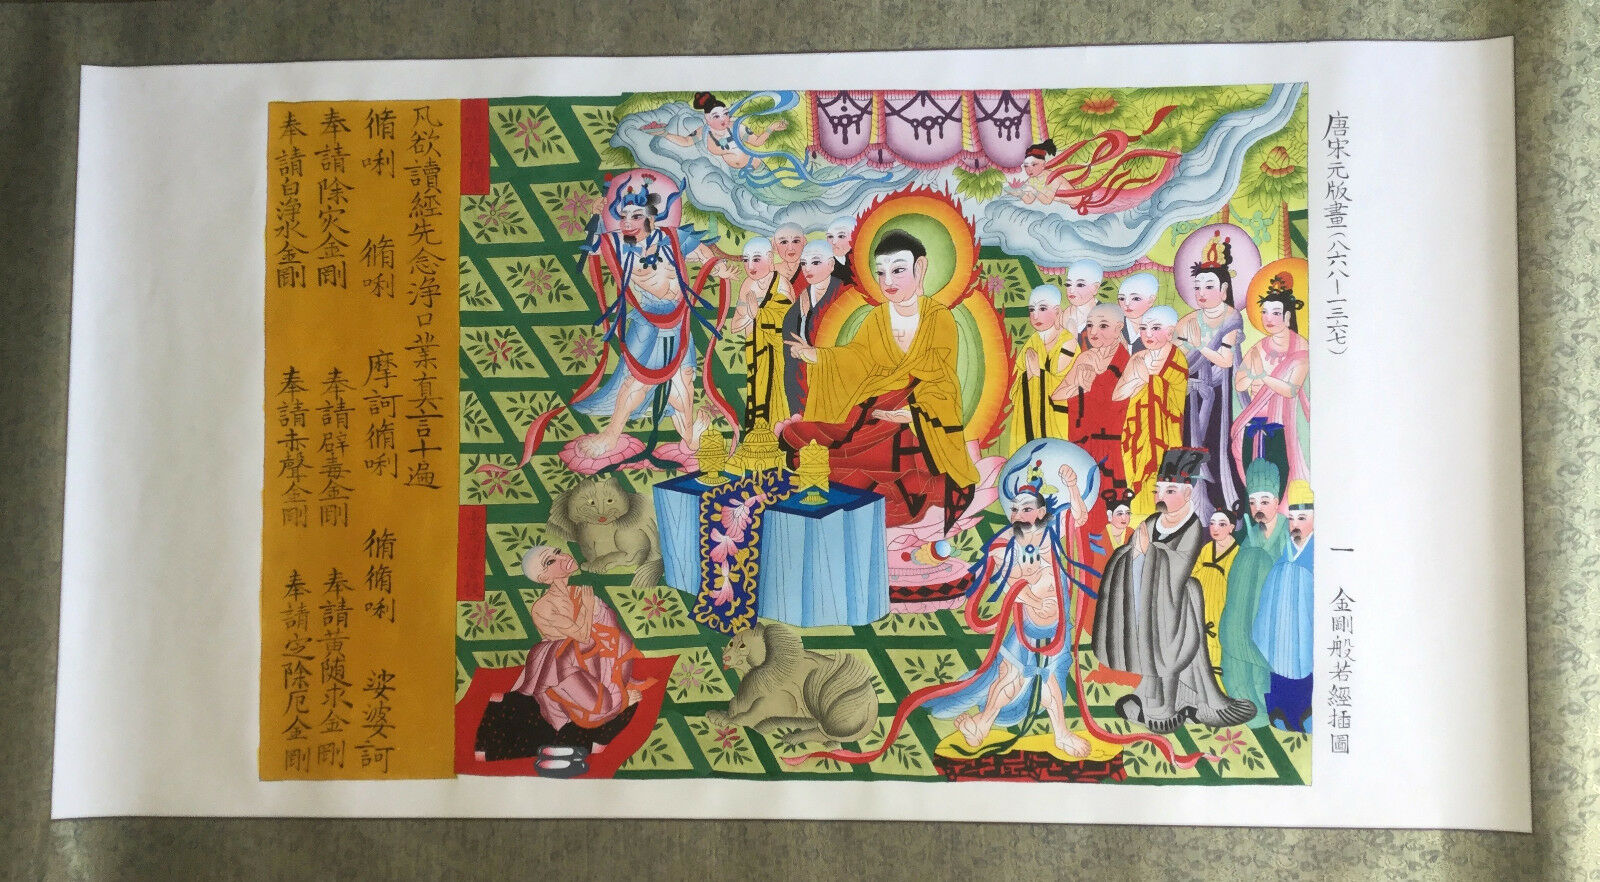 唐宋元版畫（八六八—一三六七）
一 金剛般若經插圖
凡欲讀經先念浄口業真言十遍
脩唎 脩唎 摩訶脩唎 脩脩唎 娑婆訶
奉請除灾金剛 奉請辟毒金剛 奉請黄随求金剛
奉請白浄水金剛 奉請赤聲金剛 奉請定除厄金剛